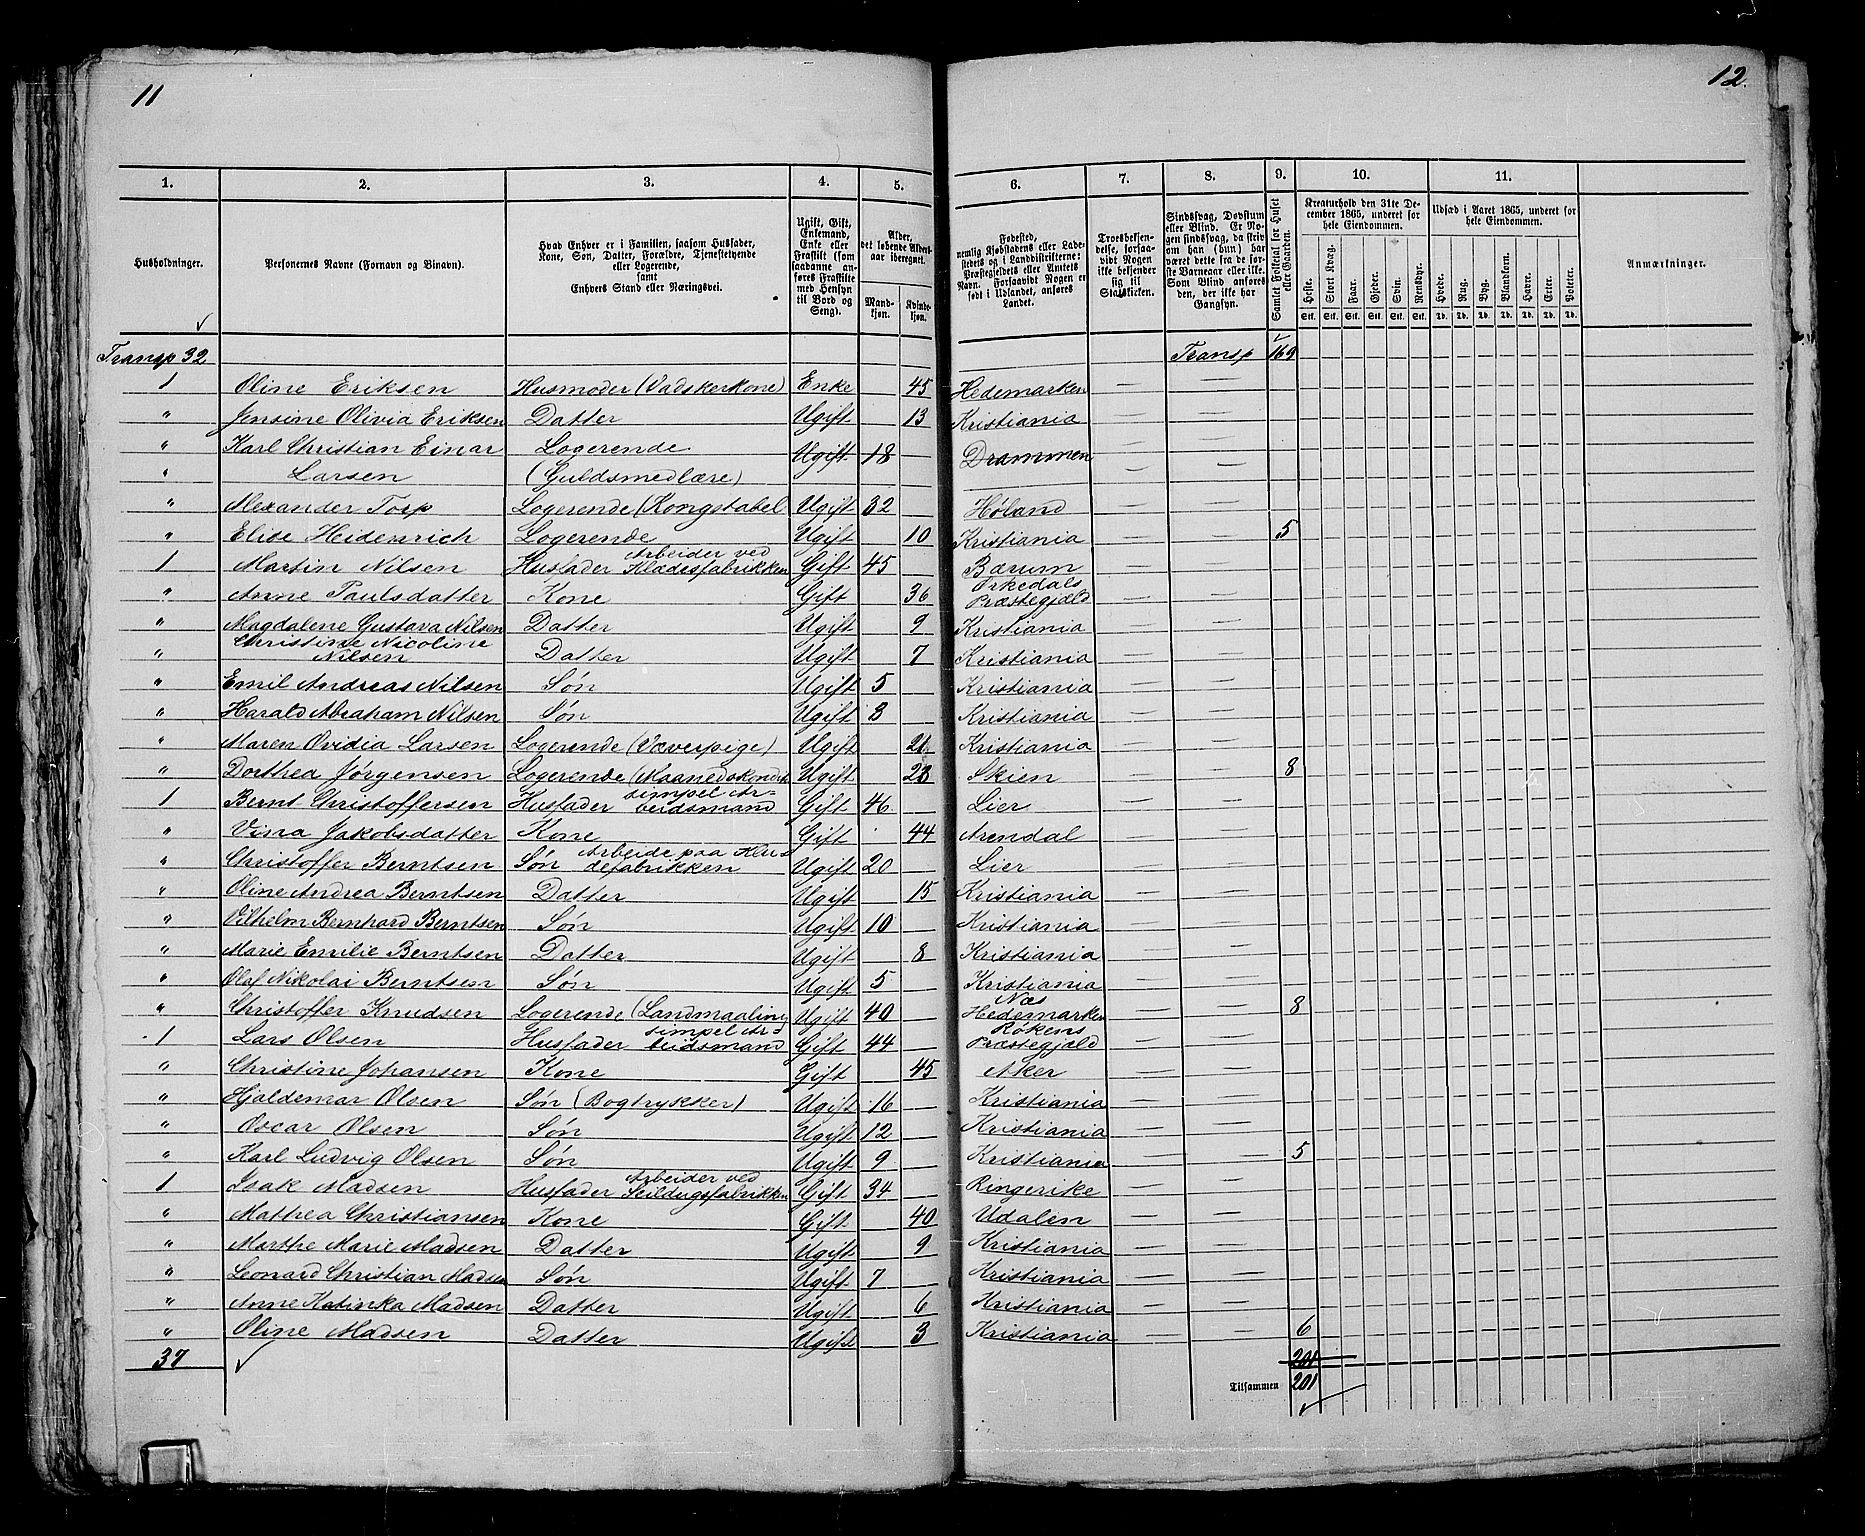 11
12.
1. 2. 3. 4. 5. 6. 7. 8. 9. 10. 11.
Husholdninger.
Personernes Navne (Fornavn og Binavn).
Hvad Enhver er i Familien, saasom Husfader,
Kone, Søn, Datter, Forældre, Tjenestetyende
eller Logerende,
samt
Enhvers Stand eller Næringsvei.
Ugift, Gift,
Enkemand,
Enke eller
Fraskilt (som
saadanne an-
føres Fraskilte
med Hensyn
til Bord og
Seng).
Alder,
det løbende Alders-
aar iberegnet.
Mand-
kjøn.
Kvinde-
kjøn.
Fødested,
nemlig Kjøbstadens eller Lade-
stedets og i Landdistrikterne:
Præstegjeldets eller Amtets
Navn. Forsaavidt Nogen er
født i Udlandet, anføres
Landet.
Troesbekjen-
delse, forsaa-
vidt Nogen
ikke bekjender
sig til
Statskirken.
Sindssvag, Døvstum
eller Blind. Er No-
gen sindssvag, da skriv
om han (hun) har
været dette fra de før-
ste Barneaar eller ikke.
Som Blind anføres
den, der ikke har
Gangsyn.
Samlet Folketal for Huset
eller Gaarden.
Kreaturhold den 31te De-
cember 1865, underet for
hele Eiendommen.
Heste. Stort Kvæg. Faar. Gjeder. Svin. Rensdyr.
Stk. Stk. Stk. Stk. Stk. Stk.
Udsæd i Aaret 1865, underet for
hele Eiendommen.
Hvede. Rug. Byg. Blandkorn. Havre. Erter. Poteter.
Td. Td. Td. Td. Td. Td. Td.
Anmærkninger.
Transp 32 Transp 169
1 Oline Eriksen Husmoder (Vadskerkone) Enke 45 Hedemarken — —
" Jensine Olivia Eriksen Datter Ugift 13 Kristiania — —
" Karl Christian Einar Logerende Ugift 18 Drammen — —
" Larsen (Guldsmedlære) — —
" Alexander Torp Logerende (Kongstabel Ugift 32 Høland — —
" Elise Heidenrich Logerende Ugift 10 Kristiania — — 5
1 Martin Nilsen Husfader Arbeider ved Klædesfabrikken Gift 45 Bærum — —
" Anne Paulsdatter Kone Gift 36 Orkedals Præstegjæld — —
" Magdalene Gustava Nilsen Datter Ugift 9 Kristiania — —
" Christine Nicoline Nilsen Datter Ugift 7 Kristiania — —
" Emil Andreas Nilsen Søn Ugift 5 Kristiania — —
" Harald Abraham Nilsen Søn Ugift 3 Kristiania — —
" Maren Ovidia Larsen Logerende (Væverpige) Ugift 21 Kristiania — —
" Dorthea Jørgensen Logerende Ugift 23 Skien — — 8
1 Bernt Christoffersen Husfader simpel Ar= beidsmand Gift 46 Lier — —
" Vina Jakobsdatter Kone Gift 44 Arendal — —
" Christoffer Berntsen Søn Arbeide paa Klæ= defabrikken Ugift 20 Lier — —
" Oline Andrea Berntsen Datter Ugift 15 Kristiania — —
" Vilhelm Bernhard Berntsen Søn Ugift 10 Kristiania — —
" Marie Emilie Berntsen Datter Ugift 8 Kristiania — —
" Olaf Nikolai Berntsen Søn Ugift 5 Kristiania — —
" Christoffer Knudsen Logerende (Landmaaling Ugift 40 Næs Hedemarken — — 8
1 Lars Olsen Husfader simpel Ar= beidsmand Gift 44 Røkens Præstegjæld — —
" Christine Johansen Kone Gift 45 Aker — —
" Hjaldemar Olsen Søn (Bogtrykker) Ugift 16 Kristiania — —
" Oscar Olsen Søn Ugift 12 Kristiania — —
" Karl Ludvig Olsen Søn Ugift 9 Kristiania — — 5
1 Isak Madsen Husfader Arbeider ved Seildugsfabrikken Gift 34 Ringerike — —
" Mathea Christiansen Kone Gift 40 Udalen — —
" Marthe Marie Madsen Datter Ugift 9 Kristiania — —
" Leonard Christian Madsen Søn Ugift 7 Kristiania — —
" Anne Katinka Madsen Datter Ugift 6 Kristiania — —
" Oline Madsen Datter Ugift 3 Kristiania — — 6
37 201
Tilsammen 201